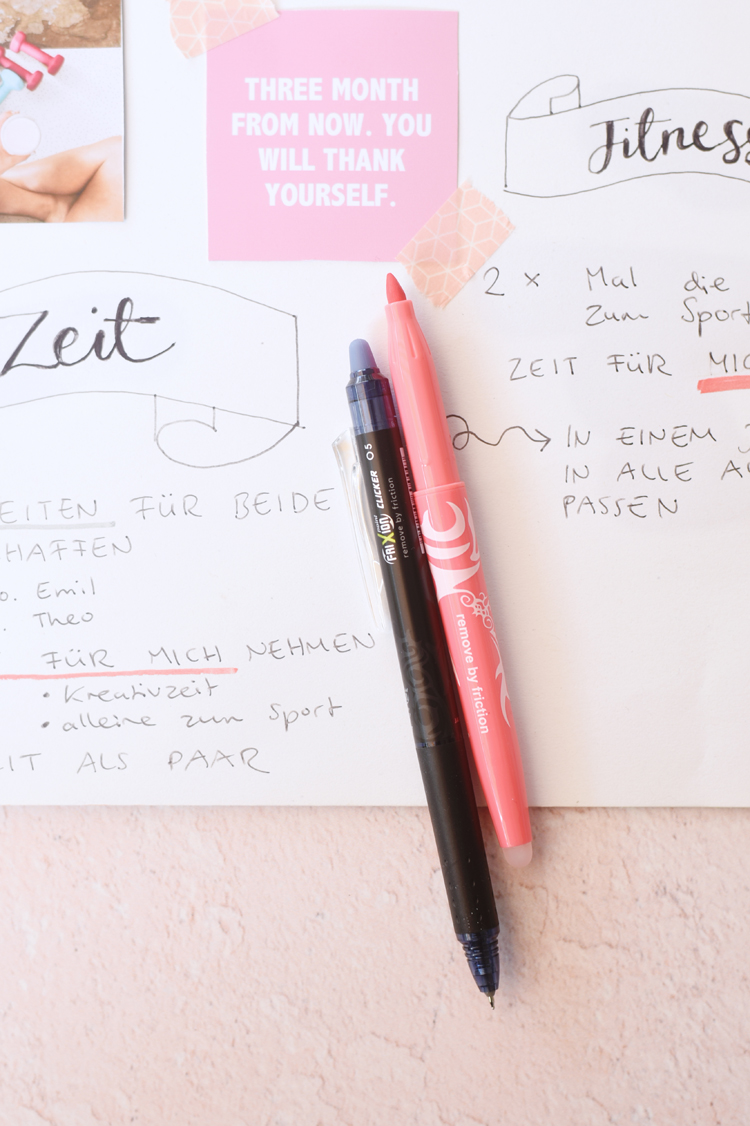 THREE MONTH
FROM NOW. YOU
WILL THANK
YOURSELF.
Fitness
Zeit
2 x Mal die
zum Sport
ZEIT FÜR
IN EINEM
IN ALLE
PASSEN
FÜR BEIDE
Emil
Theo
FÜR MICH NEHMEN
• Kreativzeit
• alleine zum Sport
ALS PAAR
FRIXION CLICKER 05
remove by friction
remove by friction